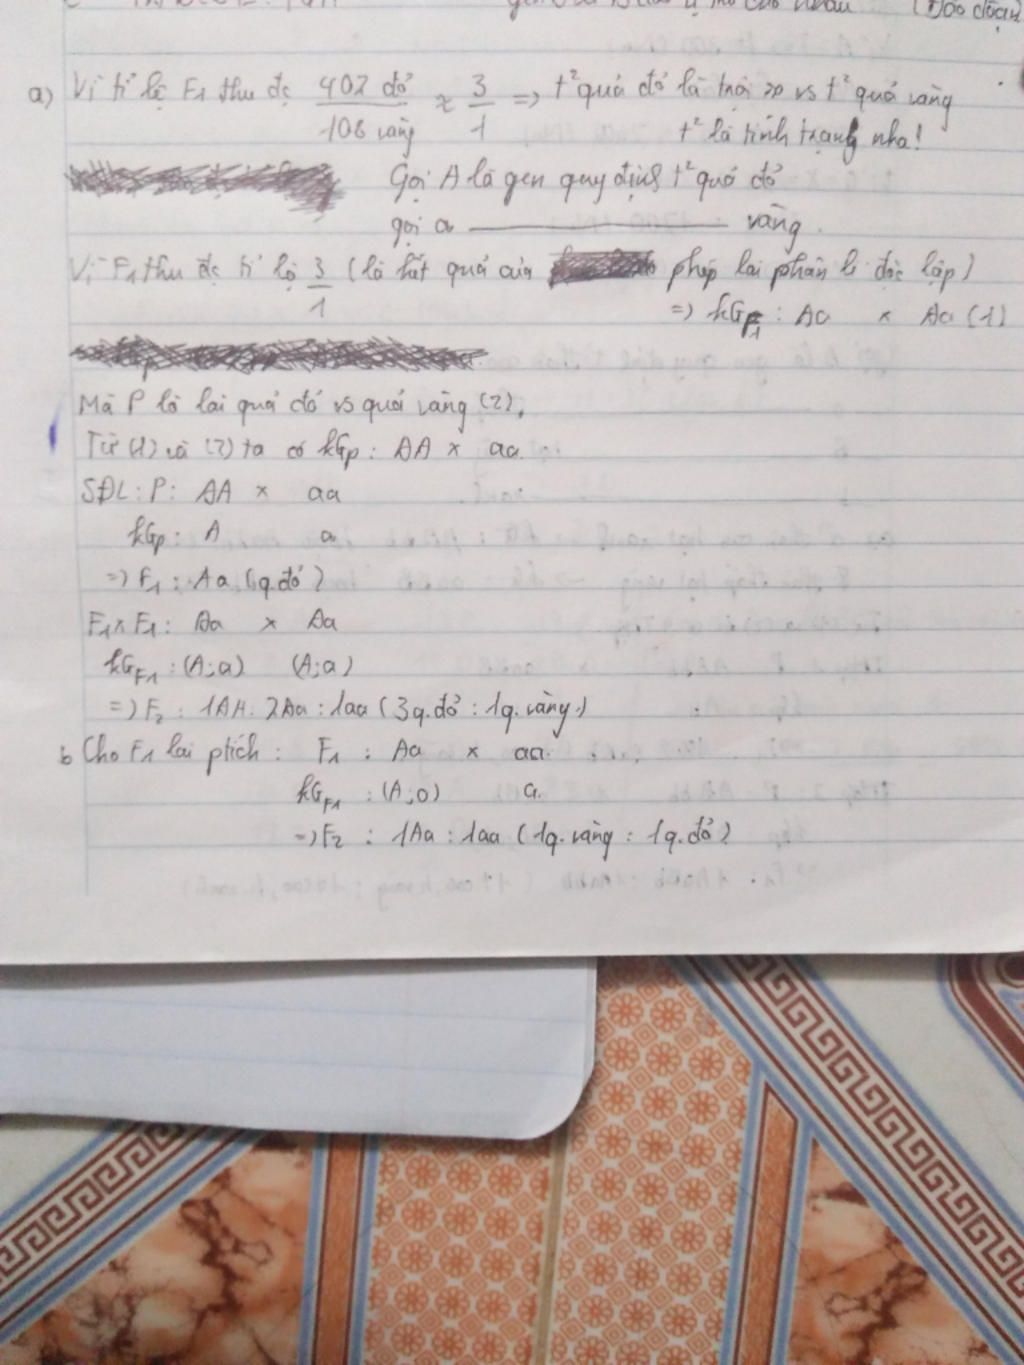 a) Vì tỉ lệ F1 thu đc 402 đỏ / 108 vàng ≈ 3/1 => t² quả đỏ là trội >> vs t² quả vàng
t² là tính trạng nha!
Gọi A là gen quy định t² quả đỏ
gọi a ——— vàng.
Vì F1 thu đc tỉ lệ 3/1 (là kết quả của phép lai phân li độc lập)
=> kG F1 : Aa x Aa (1)
Mà P là lai quả đỏ vs quả vàng (2),
Từ (1) và (2) ta có kGp : AA x aa.
SĐL : P : AA x aa
kGp : A a
=> F1 : Aa (q.đỏ)
F1 x F1 : Aa x Aa
kG F1 : (A;a) (A;a)
=> F2 : 1AA : 2Aa : 1aa (3q.đỏ : 1q.vàng)
b Cho F1 lai ptích : F1 : Aa x aa.
kG F1 : (A;a) a.
=> F2 : 1Aa : 1aa (1q.vàng : 1q.đỏ)